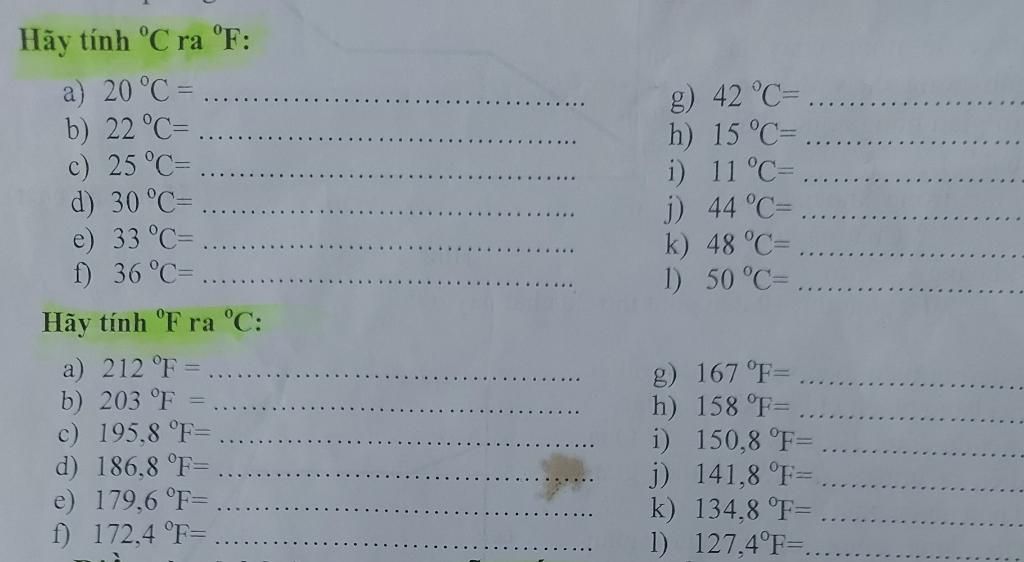 Hãy tính ⁰C ra ⁰F:
a) 20 ⁰C = ........................................
b) 22 ⁰C= ........................................
c) 25 ⁰C= ........................................
d) 30 ⁰C= ........................................
e) 33 ⁰C= ........................................
f) 36 ⁰C= ........................................
g) 42 ⁰C= ........................
h) 15 ⁰C= ........................
i) 11 ⁰C= ........................
j) 44 ⁰C= ........................
k) 48 ⁰C= ........................
l) 50 ⁰C= ........................
Hãy tính ⁰F ra ⁰C:
a) 212 ⁰F = ........................................
b) 203 ⁰F = ........................................
c) 195,8 ⁰F= ........................................
d) 186,8 ⁰F= ........................................
e) 179,6 ⁰F= ........................................
f) 172,4 ⁰F= ........................................
g) 167 ⁰F= ........................
h) 158 ⁰F= ........................
i) 150,8 ⁰F= ........................
j) 141,8 ⁰F= ........................
k) 134,8 ⁰F= ........................
l) 127,4⁰F=........................